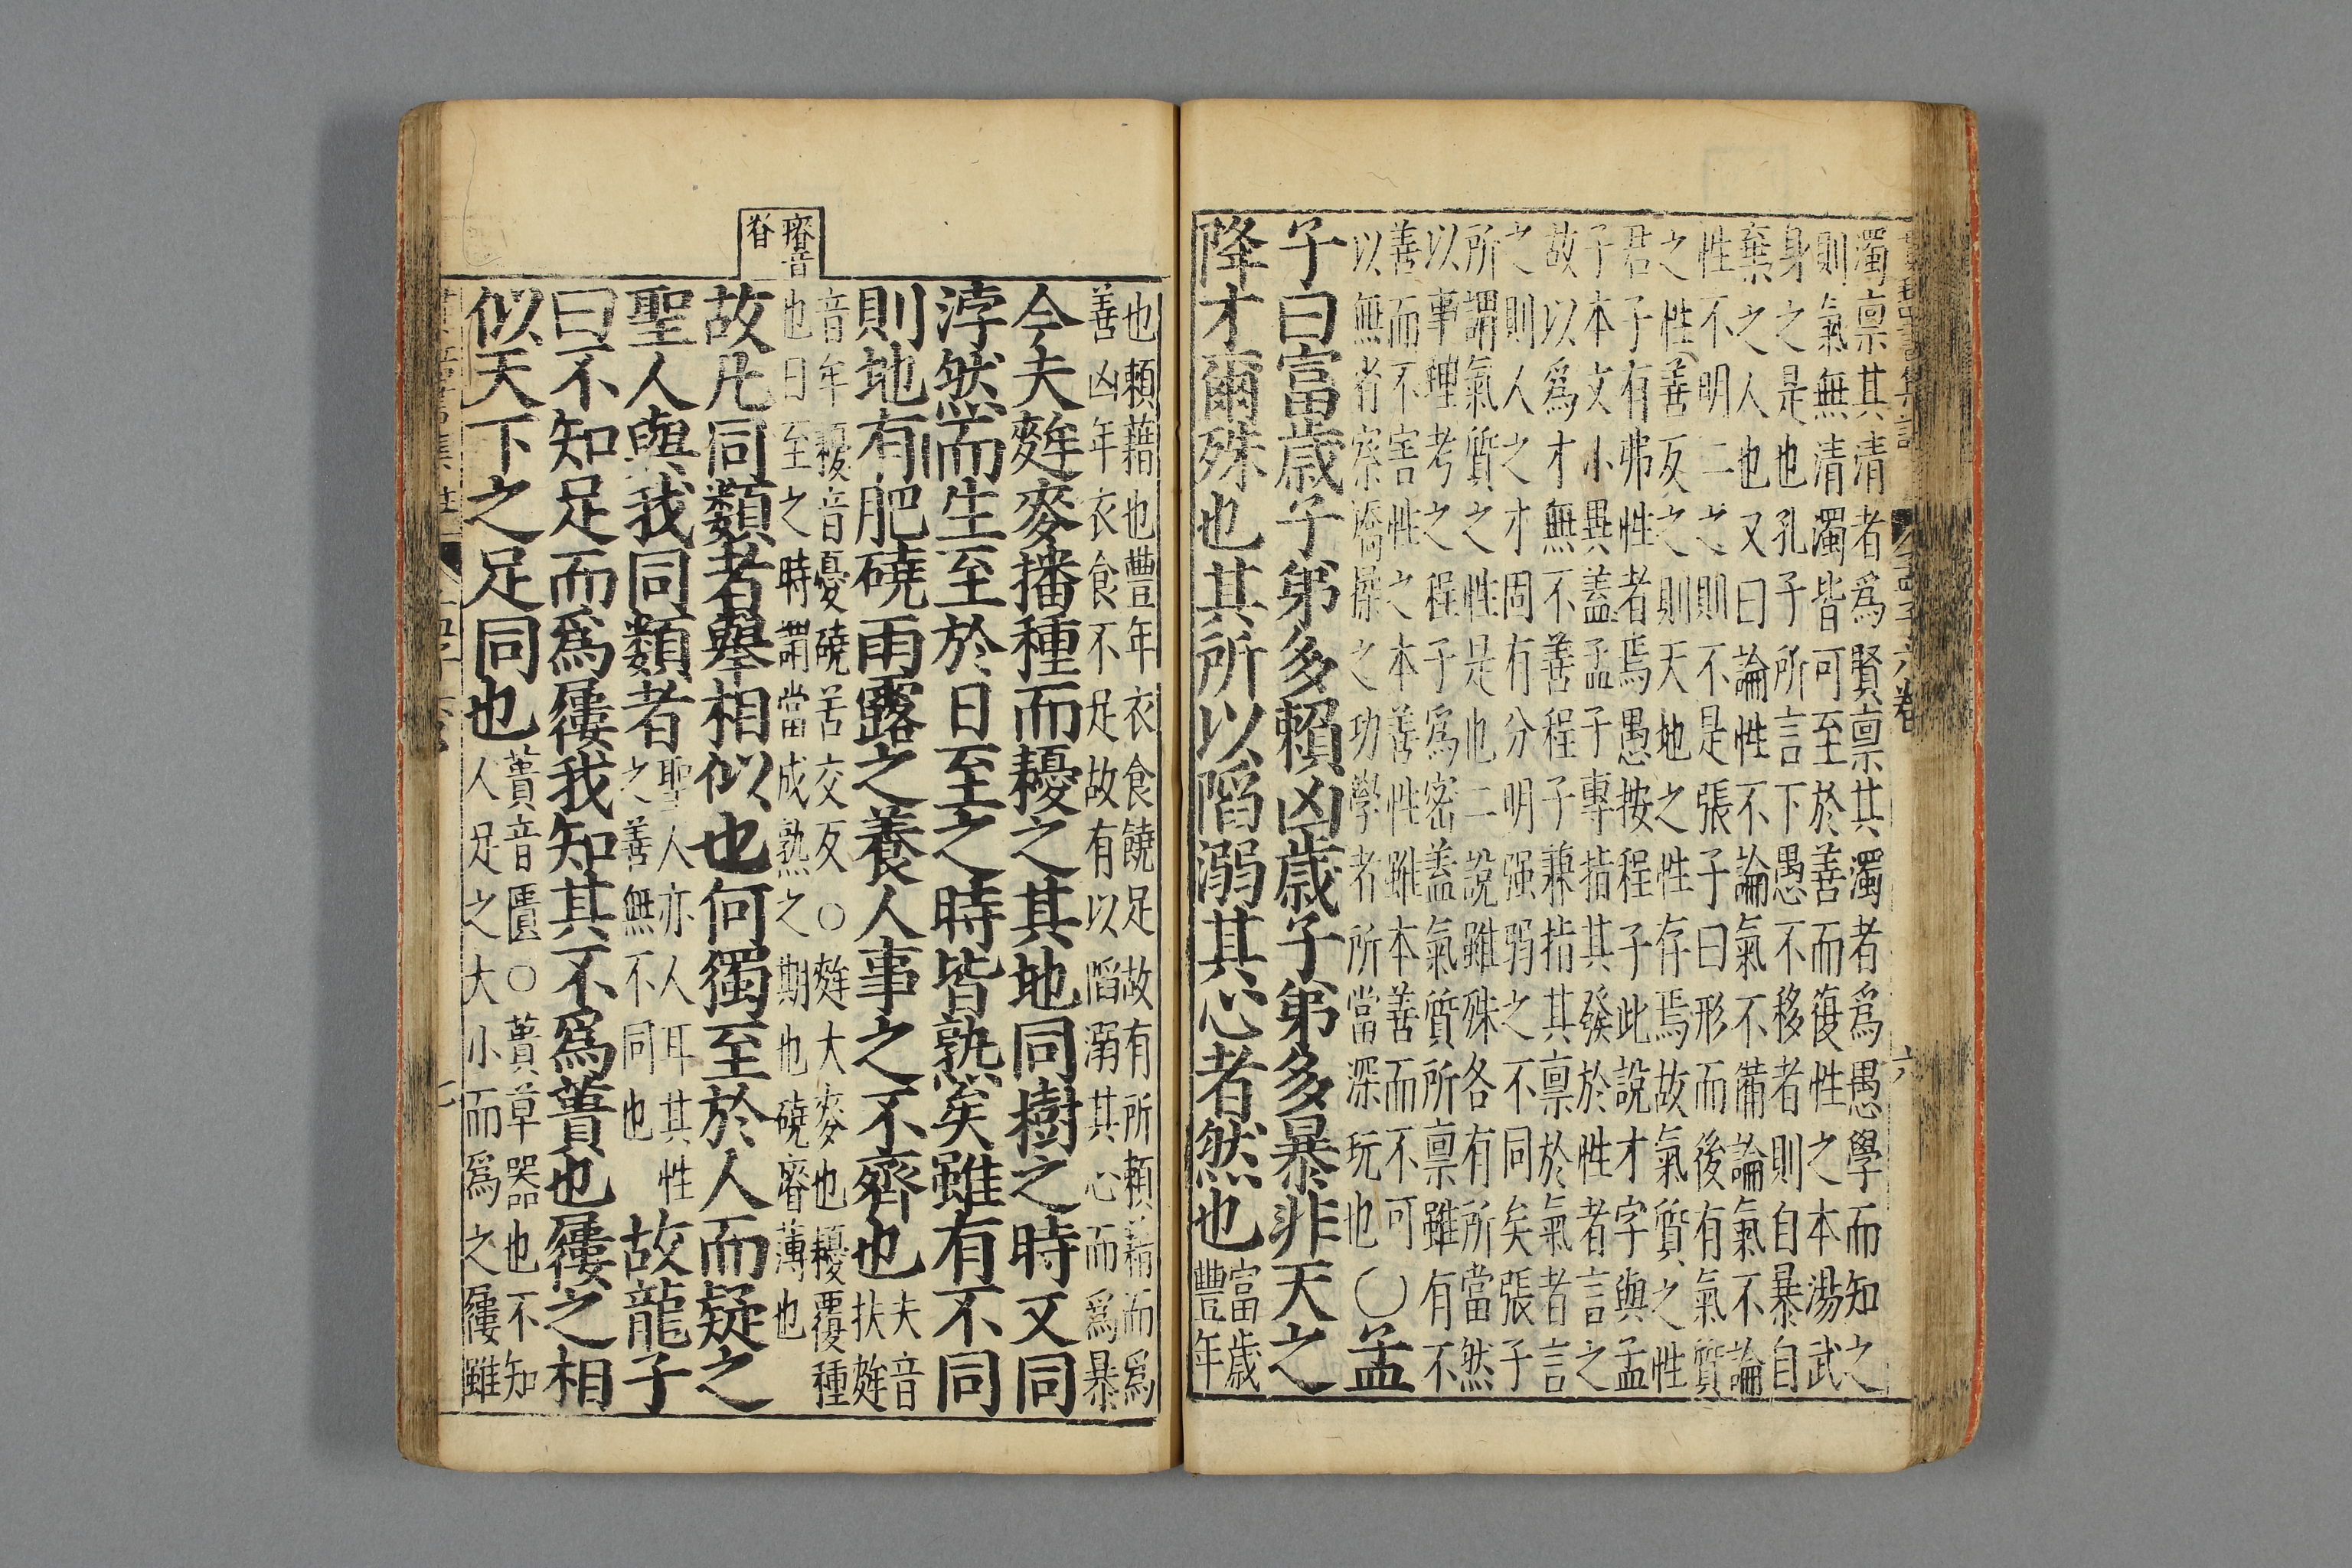 濁禀其清者爲賢禀其濁者爲愚學而知之
則氣無清濁皆可至於善而復性之本湯武
身之是也孔子所言下愚不移者則自暴自
棄之人也又曰論性不論氣不備論氣不論
性不明二之則不是張子曰形而後有氣質
之性善反之則天地之性存焉故氣質之性
君子有弗性者焉愚按程子此說才字與孟
子本文小異蓋孟子專指其發於性者言之
故以爲才無不善程子兼指其禀於氣者言
之則人之才固有分明强弱之不同矣張子
所謂氣質之性是也二說雖殊各有所當然
以事理考之程子爲密蓋氣質所禀雖有不
善而不害性之本善性雖本善而不可
以無省察矯揉之功學者所當深玩也○孟
子曰富歲子弟多賴凶歲子弟多暴非天之
降才爾殊也其所以陷溺其心者然也
富歲
豐年
也賴藉也豐年衣食饒足故有所賴藉而爲
善凶年衣食不足故有以陷溺其心而爲暴
今夫麰麥播種而耰之其地同樹之時又同
浡然而生至於日至之時皆熟矣雖有不同
則地有肥磽雨露之養人事之不齊也
夫音
扶麰
音牟耰音憂磽苦交反○麰大麥也耰覆種
也日至之時謂當成熟之期也磽瘠薄也
瘠音
故凡同類者舉相似也何獨至於人而疑之
聖人與我同類者
聖人亦人耳其性
之善無不同也
故龍子
曰不知足而爲屨我知其不爲蕢也屨之相
似天下之足同也
蕢音匱○蕢草器也不知
人足之大小而爲之屨雖